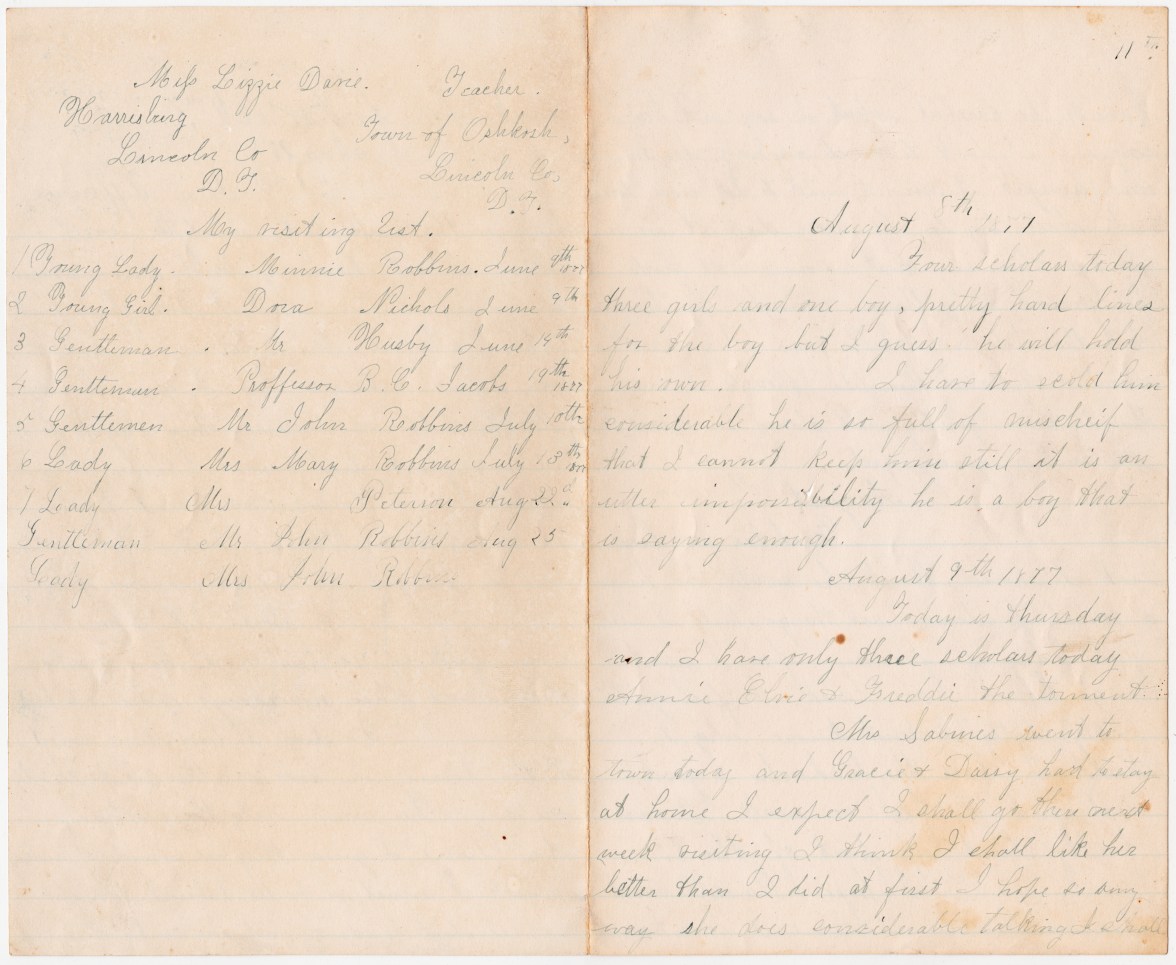 Miss Lizzie Davie. Teacher.
Harrisburg
Lincoln Co
D. T.
Town of Oshkosh,
Lincoln Co,
D. T.
My visiting List.
1 Young Lady. Minnie Robbins. June 9th 1877
2 Young Girl. Dora Nichols June 9th
3 Gentleman. Mr Husby June 19th
4 Gentleman. Proffessor B. C. Jacobs 19th 1877
5 Gentlemen Mr John Robbins July 10th
6 Lady Mrs Mary Robbins July 13th 1877
7 Loady Mrs Peterson Aug 22d "
Gentleman Mr John Robbins Aug 25
Lody Mrs John Robbins
11th
August 8th 1877
Four scholars today
three girls and one boy, pretty hard lines
for the boy but I guess he will hold
his own. I have to scold him
considerable he is so full of mischeif
that I cannot keep him still it is an
utter impossibility he is a boy that
is saying enough.
August 9th 1877
Today is thursday
and I have only three scholars today
Annie Elvie & Freddie the torment.
Mrs Sabines went to
town today and Gracie & Daisy had to stay
at home I expect I shall go there next
week visiting I think I shall like her
better than I did at first I hope so any
way she does considerable talking I shall